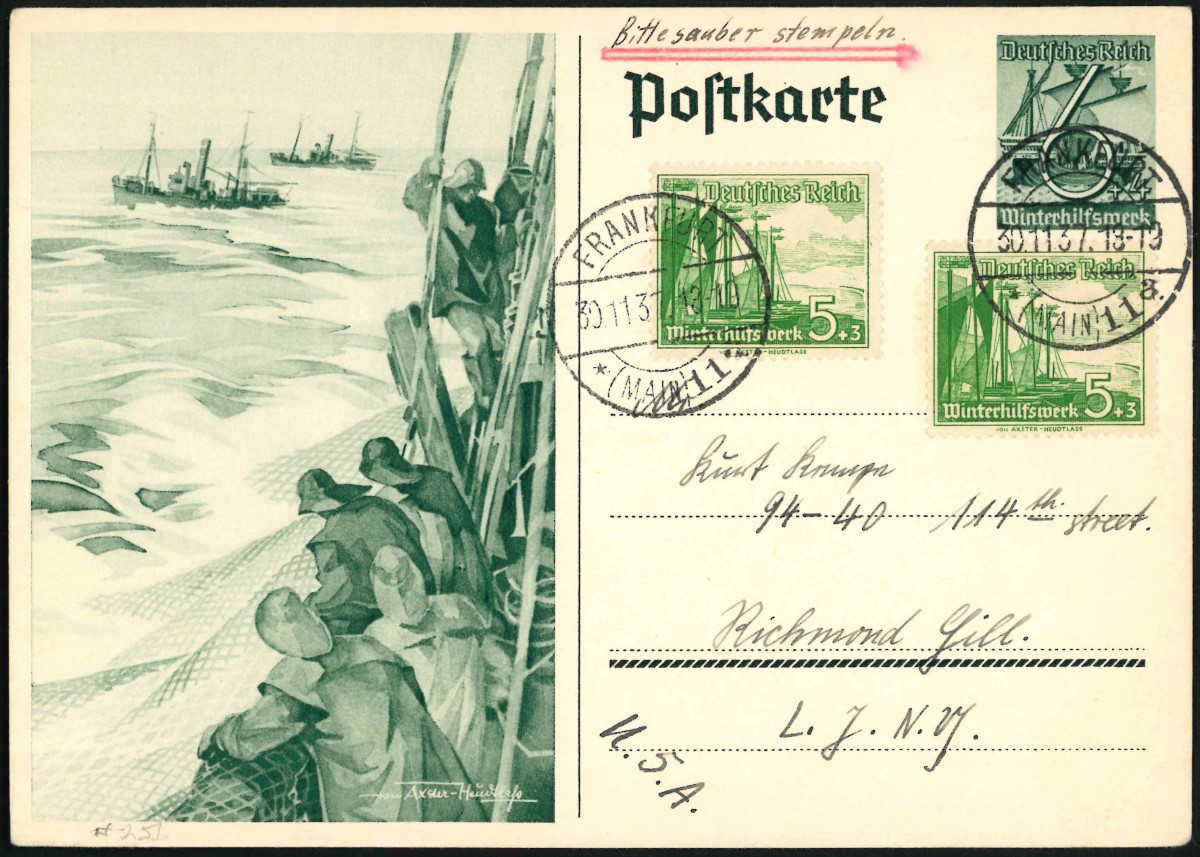 Bitte sauber stempeln.
Postkarte
Deutsches Reich
6
+4
Winterhilfswerk
FRANKFURT
30.11.37.18-19
* (MAIN) 11 a.
Deutsches Reich
5+3
Winterhilfswerk
VON AXSTER-HEUDTLASS
FRANKFURT
30.11.37.18-19
* (MAIN) 11
Deutsches Reich
Winterhilfswerk 5+3
VON AXSTER-HEUDTLASS
Kurt Kempe
94-40 114th. street.
Richmond Hill.
L. J. N.Y.
U.S.A.
von Axster-Heudtlaß
# 251